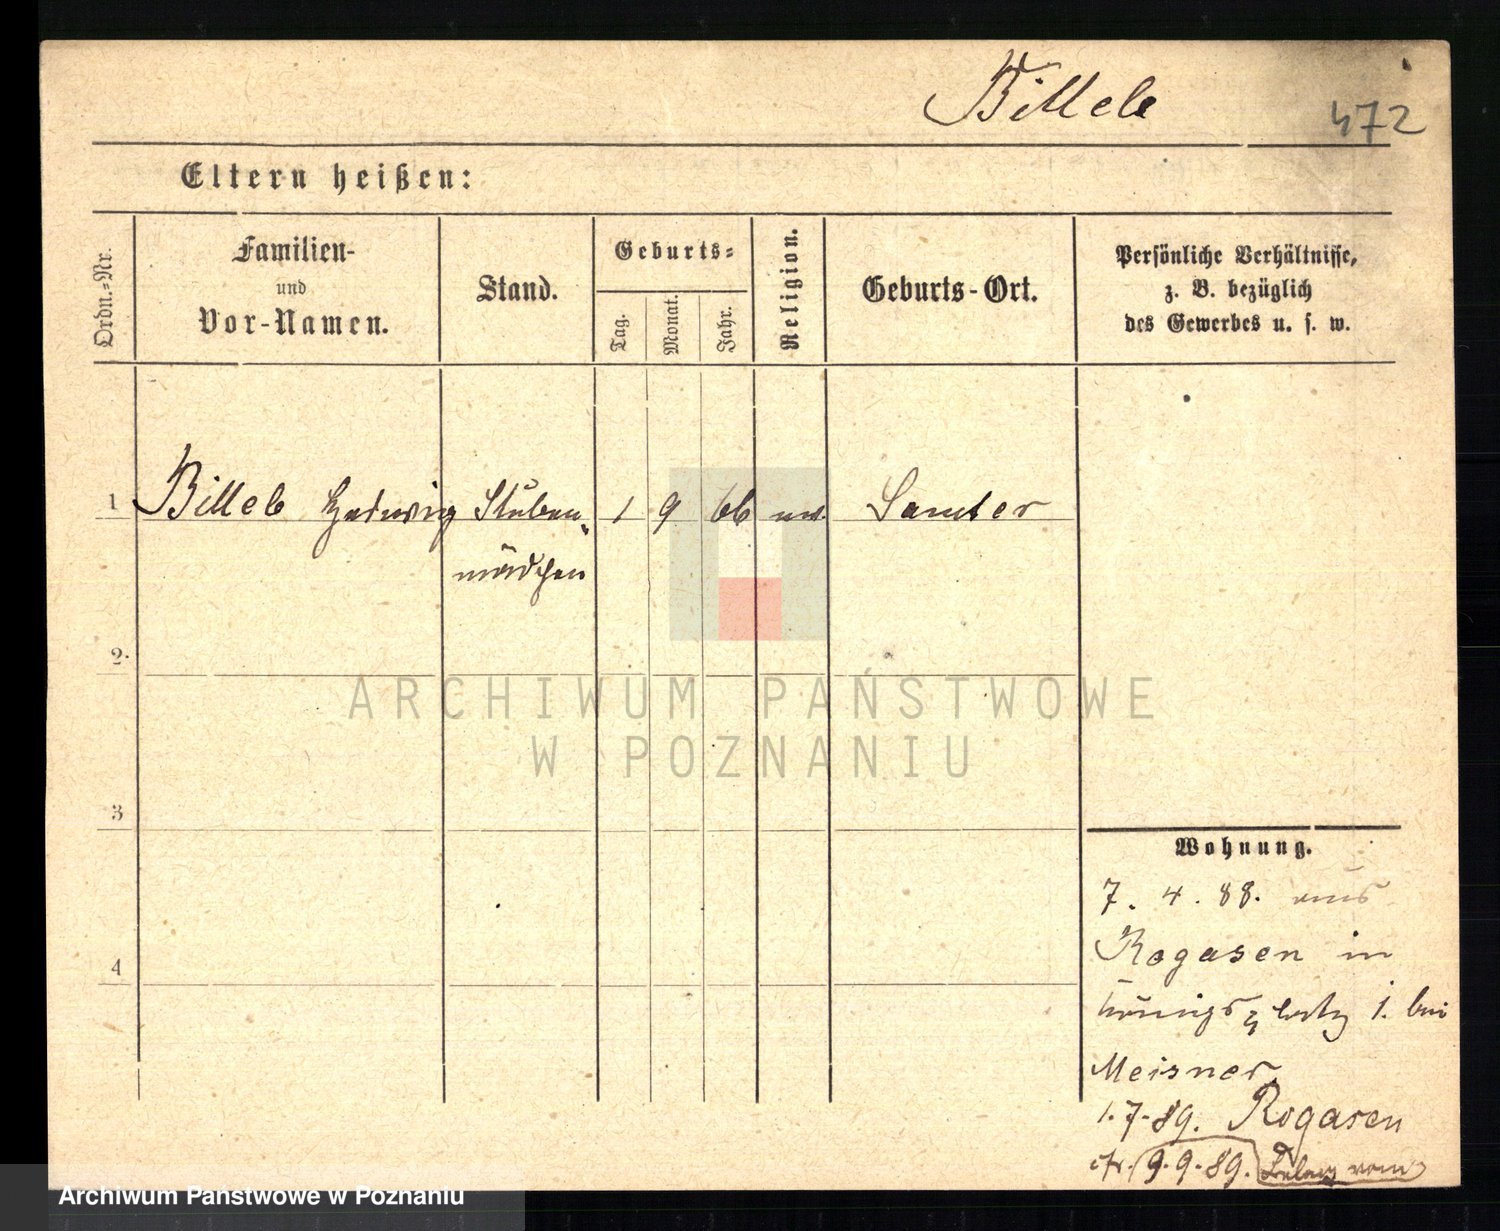 Billeb
472
Eltern heißen:
Ordn.-Nr.
Familien-
und
Vor-Namen.
Stand.
Geburts-
Tag.
Monat.
Jahr.
Religion.
Geburts-Ort.
Persönliche Verhältnisse,
z. B. bezüglich
des Gewerbes u. s. w.
1 Billeb Hedwig Stuben- 1 9 66 Samter
mädchen
2.
3
4
Wohnung.
7. 4. 88. aus
Rogasen in
Königsplatz 1. bei
Meisner
1.7.89. Rogasen
9.9.89.
ARCHIWUM PAŃSTWOWE
W POZNANIU
Archiwum Państwowe w Poznaniu